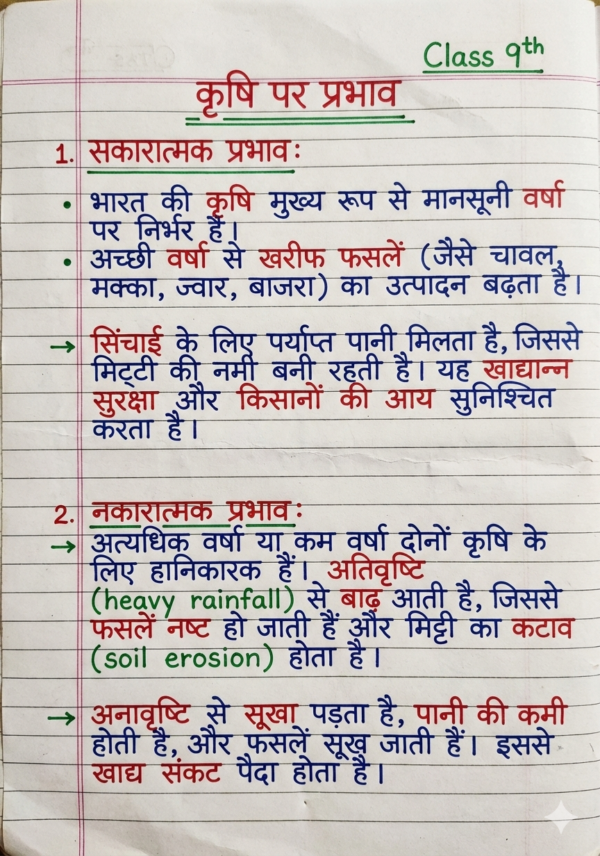 Class 9th
कृषि पर प्रभाव
1. सकारात्मक प्रभाव:
• भारत की कृषि मुख्य रूप से मानसूनी वर्षा
पर निर्भर है।
• अच्छी वर्षा से खरीफ फसलें (जैसे चावल,
मक्का, ज्वार, बाजरा) का उत्पादन बढ़ता है।
→ सिंचाई के लिए पर्याप्त पानी मिलता है, जिससे
मिट्टी की नमी बनी रहती है। यह खाद्यान्न
सुरक्षा और किसानों की आय सुनिश्चित
करता है।
2. नकारात्मक प्रभाव:
→ अत्यधिक वर्षा या कम वर्षा दोनों कृषि के
लिए हानिकारक हैं। अतिवृष्टि
(heavy rainfall) से बाढ़ आती है, जिससे
फसलें नष्ट हो जाती हैं और मिट्टी का कटाव
(soil erosion) होता है।
→ अनावृष्टि से सूखा पड़ता है, पानी की कमी
होती है, और फसलें सूख जाती हैं। इससे
खाद्य संकट पैदा होता है।